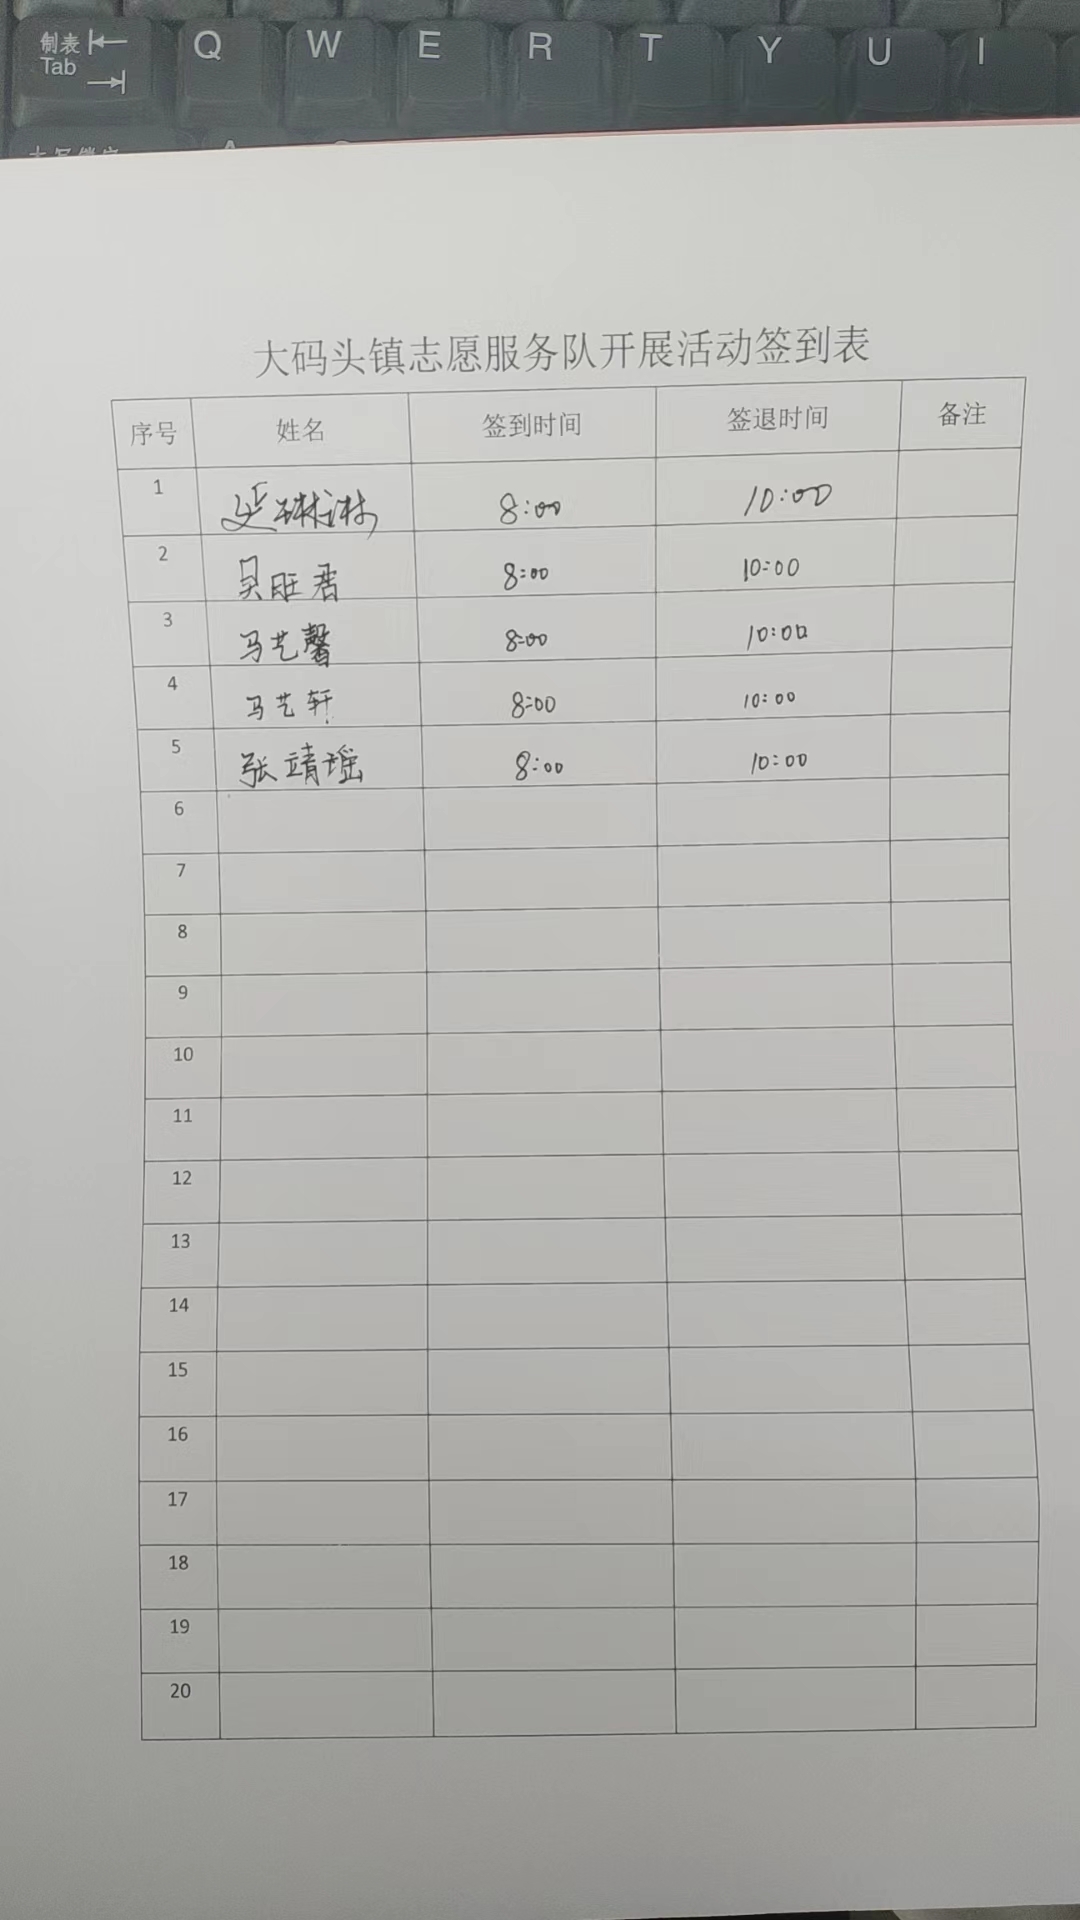 制表
Tab
Q W E R T Y U I
大码头镇志愿服务队开展活动签到表
序号 姓名 签到时间 签退时间 备注
1 延琳淋 8:00 10:00
2 吴旺君 8:00 10:00
3 马艺馨 8:00 10:00
4 马艺轩 8:00 10:00
5 张靖瑶 8:00 10:00
6
7
8
9
10
11
12
13
14
15
16
17
18
19
20